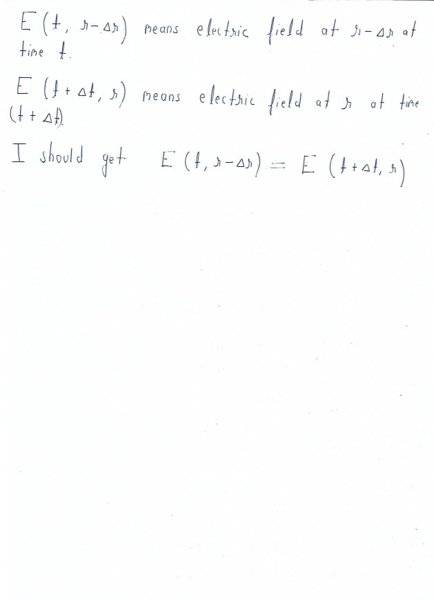 E (t, r-Δr) means electric field at r-Δr at
time t.
E (t + Δt, r) means electric field at r at time
(t + Δt)
I should get E (t, r-Δr) = E (t+Δt, r)